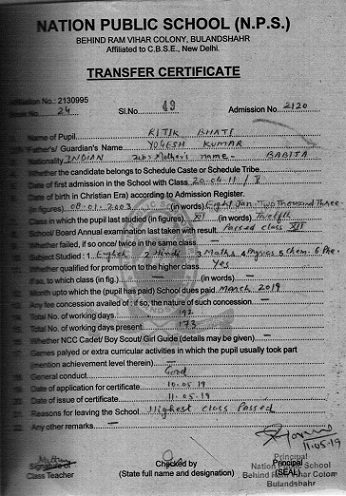 NATION PUBLIC SCHOOL (N.P.S.)
BEHIND RAM VIHAR COLONY, BULANDSHAHR
Affiliated to C.B.S.E., New Delhi.
TRANSFER CERTIFICATE
Affiliation No.: 2130995
24 Sl.No. 49 Admission No. 2120
Name of Pupil RITIK BHATI
Father's/ Guardian's Name YOGESH KUMAR
Nationality INDIAN Mother's name- BABITA
Whether the candidate belongs to Schedule Caste or Schedule Tribe
Date of first admission in the School with Class 20-04-11 / V
Date of birth in Christian Era) according to Admission Register.
figures) 08-01-2003 (in words) Eight Jan-Two Thousand Three-
Class in which the pupil last studied (in figures) XII (in words) Twelfth
School/ Board Annual examination last taken with result Passed class XII
Whether failed, if so once/ twice in the same class —
Subject Studied : 1. English 2 Hindi 3 Maths 4 Physics 5 Chem. 6 Phe.
Whether qualified for promotion to the higher class Yes
If so, to which class (in fig.) — (in words) —
Month upto which the (pupil has paid) School dues paid MARCH 2019
Any fee concession availed of : if so, the nature of such concession —
Total No. of working days 192
Total No. of working days present 173
Whether NCC Cadet/ Boy Scout/ Girl Guide (details may be given) —
Games palyed or extra curricular activities in which the pupil usually took part
(mention achievement level therein) —
General conduct Good
Date of application for certificate 10-05-19
Date of issue of certificate 11-05-19
Reasons for leaving the School Highest class Passed
Any other remarks —
11-05-19
Signature of
Class Teacher
Checked by
(State full name and designation)
Principal
(SEAL)
Principal
Nation Public School
Behind Ram Vihar Colony
Bulandshahr